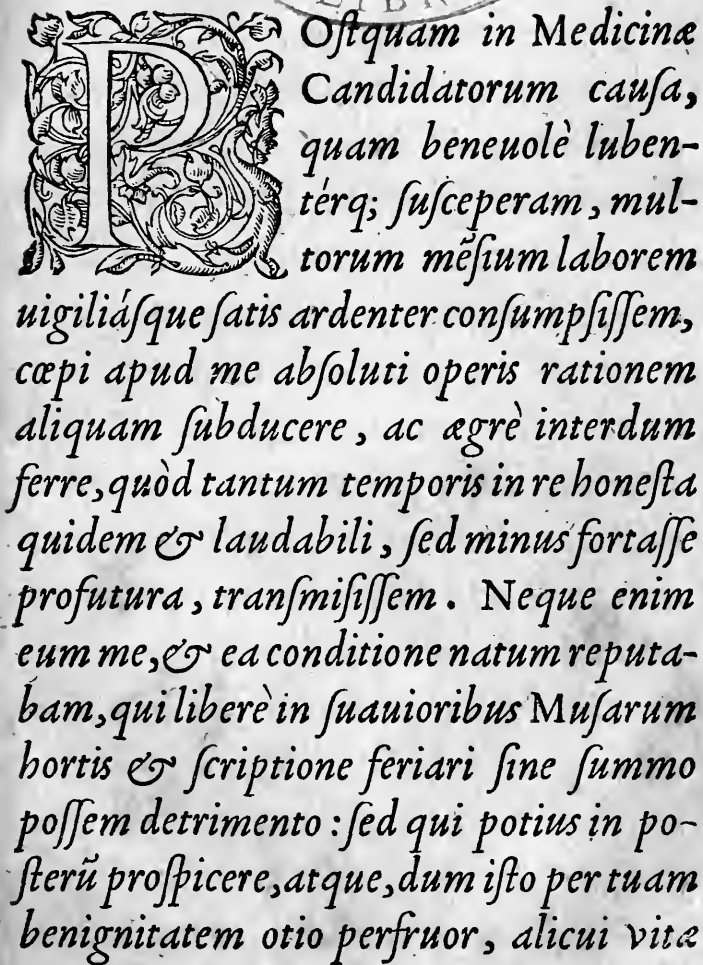 LIBR
POſtquam in Medicinæ
Candidatorum cauſa,
quam beneuolè luben-
térq; ſuſceperam, mul-
torum mẽſium laborem
uigiliáſque ſatis ardenter conſumpſiſſem,
cœpi apud me abſoluti operis rationem
aliquam ſubducere, ac ægrè interdum
ferre, quòd tantum temporis in re honeſta
quidem & laudabili, ſed minus fortaſſe
profutura, tranſmiſiſſem. Neque enim
eum me, & ea conditione natum reputa-
bam, qui liberè in ſuauioribus Muſarum
hortis & ſcriptione feriari ſine ſummo
poſſem detrimento: ſed qui potius in po-
ſterũ proſpicere, atque, dum iſto per tuam
benignitatem otio perfruor, alicui vitæ